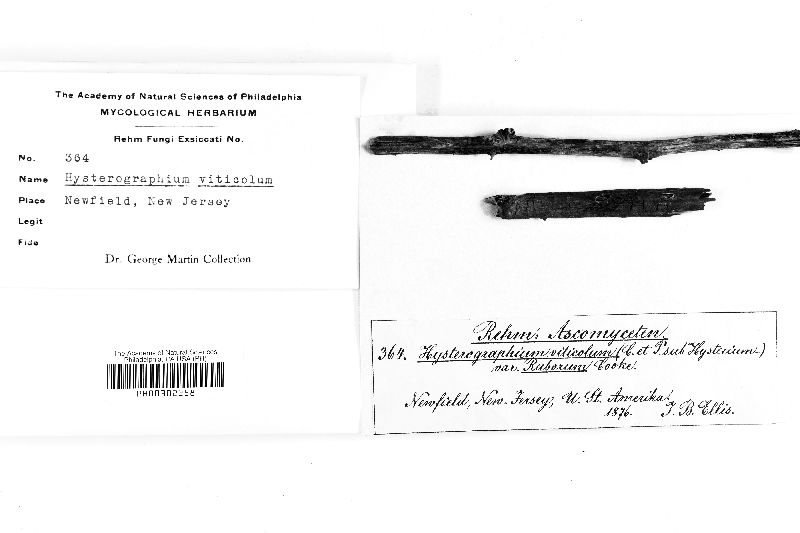 The Academy of Natural Sciences of Philadelphia
MYCOLOGICAL HERBARIUM
Rehm Fungi Exsiccati No.
No. 364
Name Hysterographium viticolum
Place Newfield, New Jersey
Legit
Fide
Dr. George Martin Collection
The Academy of Natural Sciences
Philadelphia, PA USA (PH)
PH00302258
Rehm: Ascomyceten
364. Hysterographium viticolum (C. et P. sub Hysterium.)
var. Ruborum Cooke.
Newfield, New-Jersey, U. St. Amerika.
1876. J. B. Ellis.